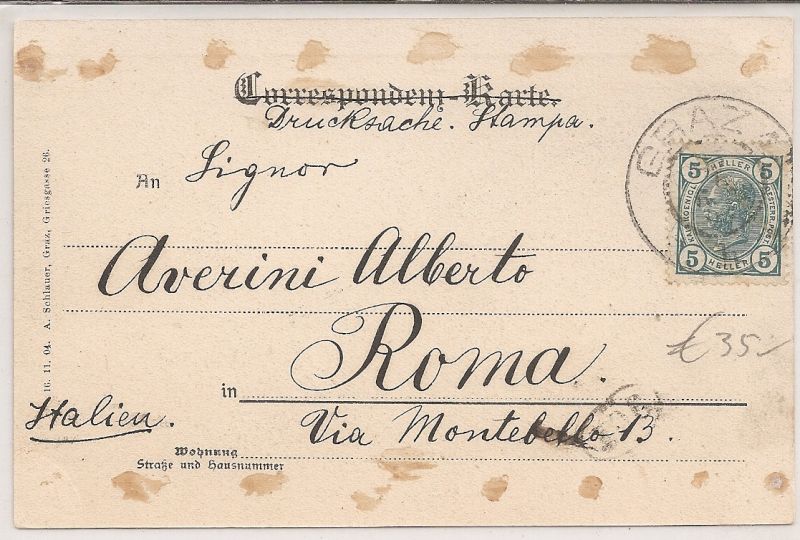 Correspondenz-Karte.
Drucksache. Stampa.
An Signor
Averini Alberto
in Roma.
Italien.
Via Montebello 13.
Wohnung
Straße und Hausnummer
16. 11. 04. A. Schlauer, Graz, Griesgasse 26.
GRAZ
5 HELLER 5
KAIS. KOENIGL. OESTERR. POST
5 HELLER 5
£ 35.-